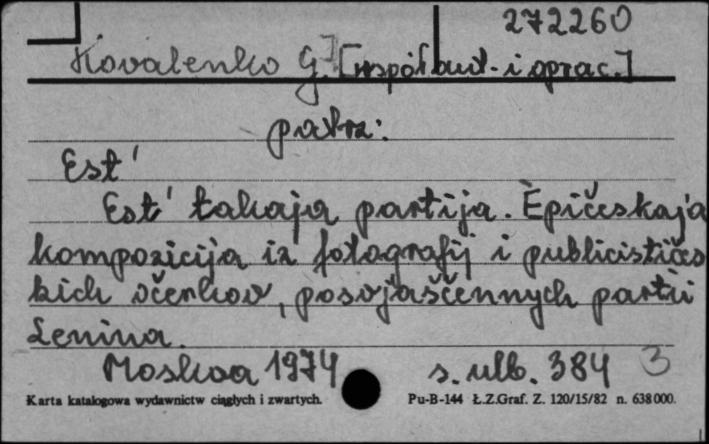 272260
Kovalenko G. [współaut. i oprac.]
patrz:
Est'
Est' takaja partija. Èpičeskaja
kompozicija iz fotografij i publicističes
kich očerkov, posvjaščennych partii
Lenina.
Moskva 1974 s. ulb. 384 3
Karta katalogowa wydawnictw ciągłych i zwartych. Pu-B-144 Ł.Z.Graf. Z. 120/15/82 n. 638000.